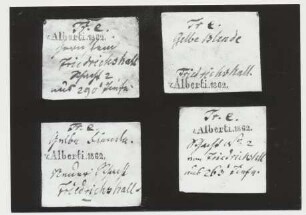 Tr. c.
v.Alberti.1862.
Friedrichshall
Schacht 2
aus 290' Tiefe
Tr. c.
Gelbe Blende
Friedrichshall.
v.Alberti.1862.
Tr. c.
Gelbe Blende
v.Alberti.1862.
Schacht
Friedrichshall
Tr. c.
v.Alberti.1862.
Schacht N. 2
von Friedrichshall
aus 263' Tiefe